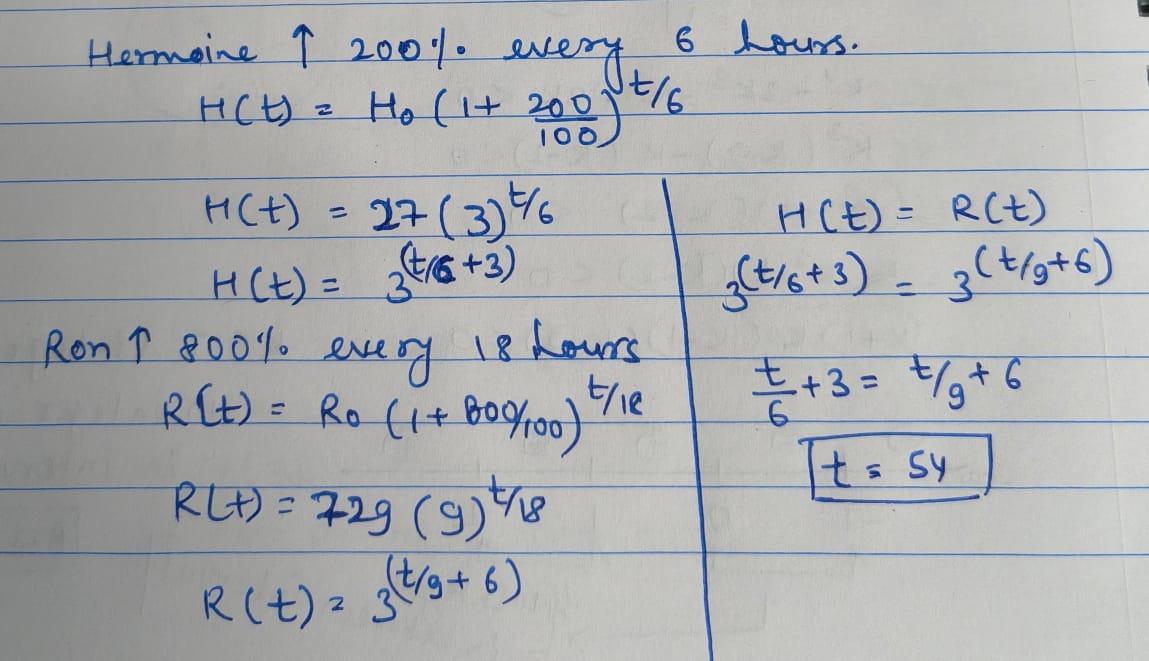 Hermoine ↑ 200% every 6 hours.
H(t) = H₀ (1 + 200/100)^(t/6)
H(t) = 27 (3)^(t/6)
H(t) = 3^(t/6 + 3)
Ron ↑ 800% every 18 hours
R(t) = R₀ (1 + 800/100)^(t/18)
R(t) = 729 (9)^(t/18)
R(t) = 3^(t/9 + 6)
H(t) = R(t)
3^(t/6 + 3) = 3^(t/9 + 6)
t/6 + 3 = t/9 + 6
t = 54